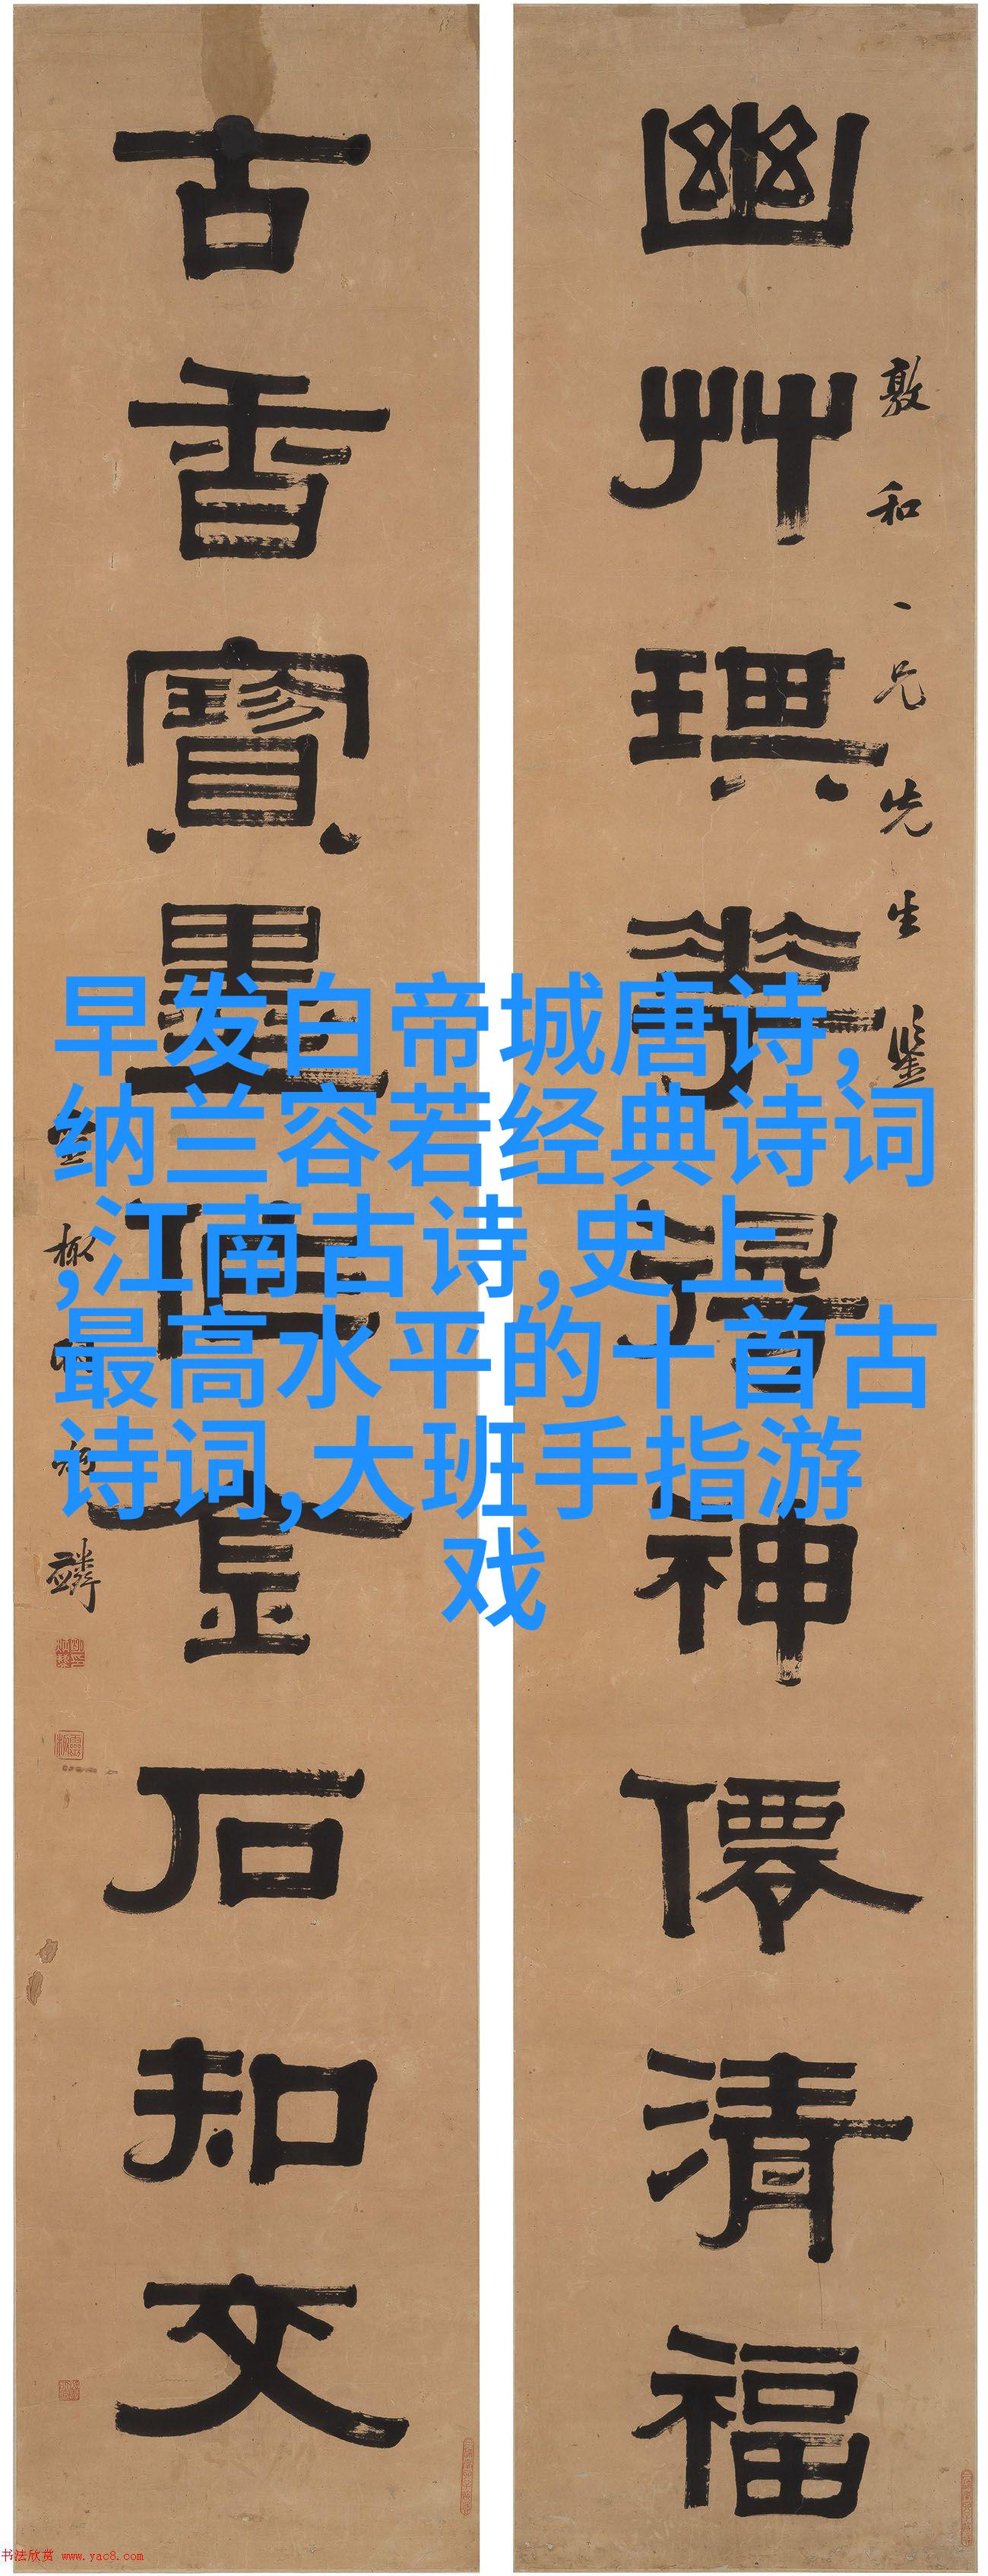 幽艸琪華得神僊清福
敦和一兄先生鑒
古香寶墨借金石知文
早发白帝城唐诗,
纳兰容若经典诗词
,江南古诗,史上
最高水平的十首古
诗词,大班手指游
戏
书法欣赏 www.yac8.com